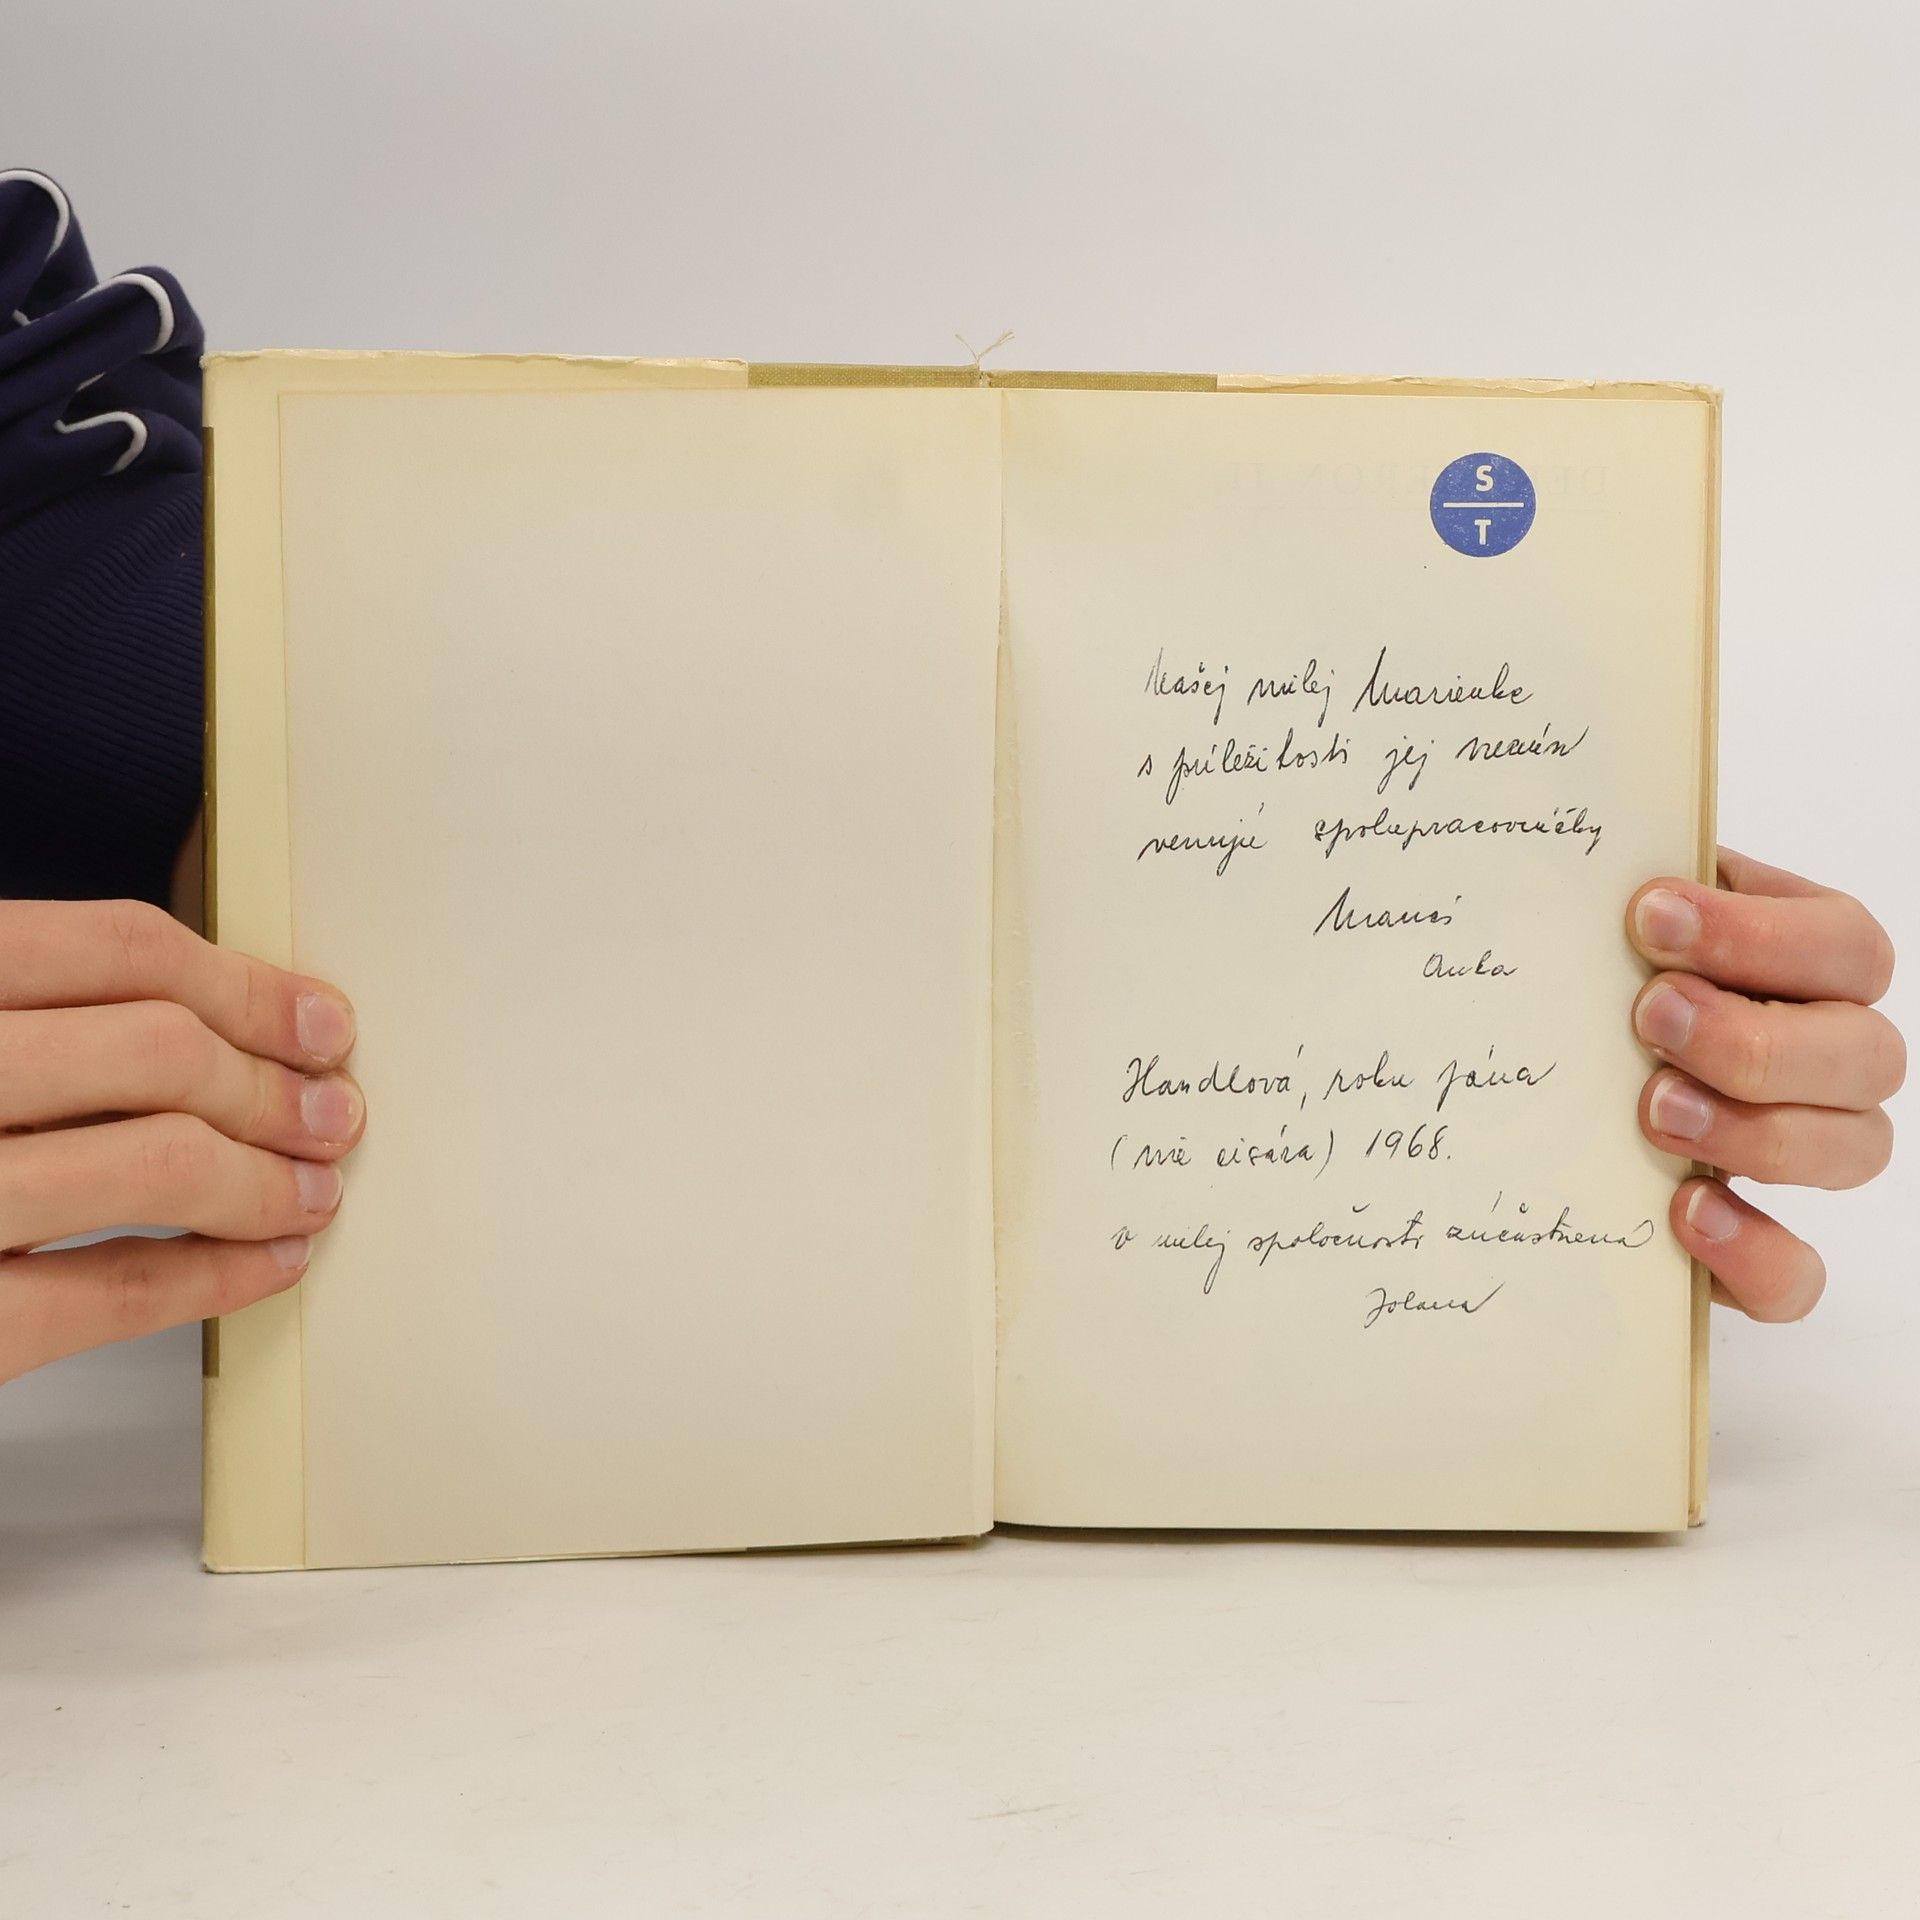 S
T
DEKAMERON II
Našej milej Marienke
s príležitosti jej menín
venujú spolupracovníčky
Manci
Anka
Handlová, roku pána
(nie cisára) 1968.
v milej spoločnosti zúčastnená
Jolana